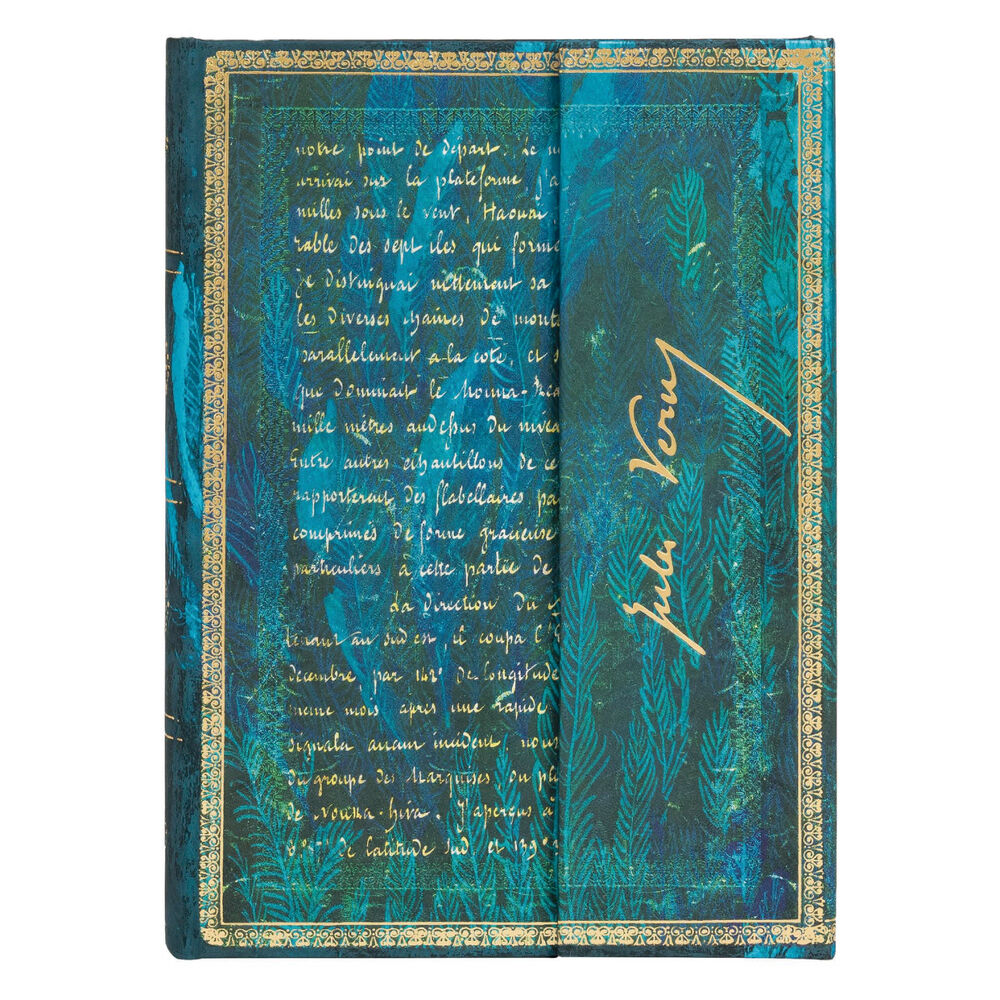 notre point de départ. Le m
arrivai sur la plateforme, j'a
milles sous le vent, Haouai
rable des sept iles qui forme
Je distinguai nettement sa
les diverses chaines de mont
parallelement a la cote, et s
que dominait le Mouna-Rea
mille mètres audessus du nivea
Entre autres échantillons de ce
rapporterent des flabellaires pa
comprimés de forme gracieuse
particuliers à cette partie de
La direction du
tenant au sud est, il coupa l'
decembre par 142° de longitude
meme mois après une rapide
signala aucun incident, nous
du groupe des Marquises ou pl
de Nouka-hiva. J'aperçus à
8°57' de latitude sud, et 139°
Jules Verne